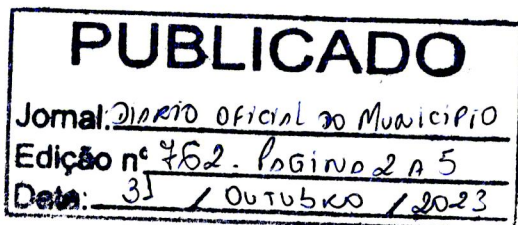 PUBLICADO
Jornal: DIARIO OFICIAL DO MUNICIPIO
Edição nº 762. PAGINA 2 A 5
Data: 31 / OUTUBRO / 2023